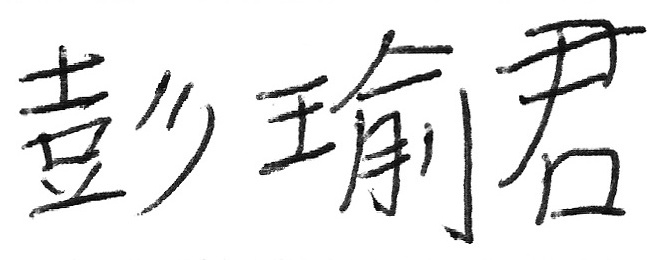 彭瑜君